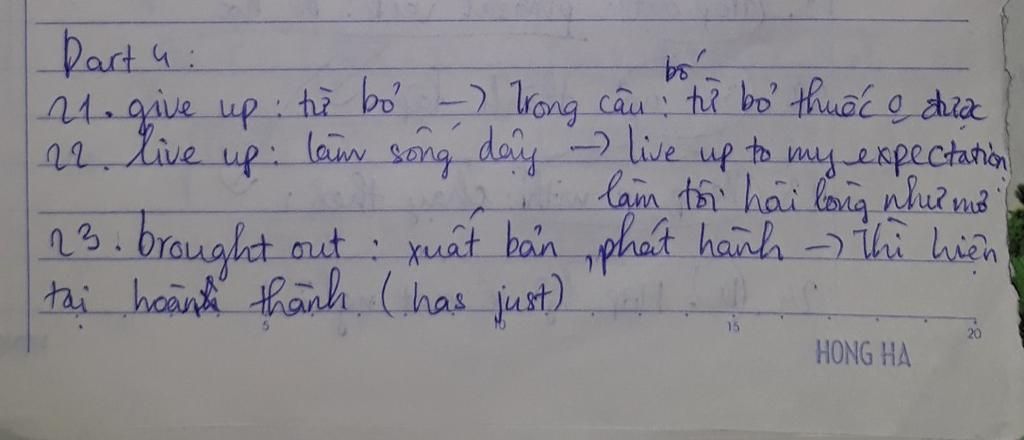 Part 4 :
bố
21. give up : từ bỏ → Trong câu : từ bỏ thuốc o được
22. live up : làm sống dậy → live up to my expectation
làm tôi hài lòng như mơ
23. brought out : xuất bản , phát hành → Thì hiện
tại hoành thành ( has just )
15
20
HONG HA